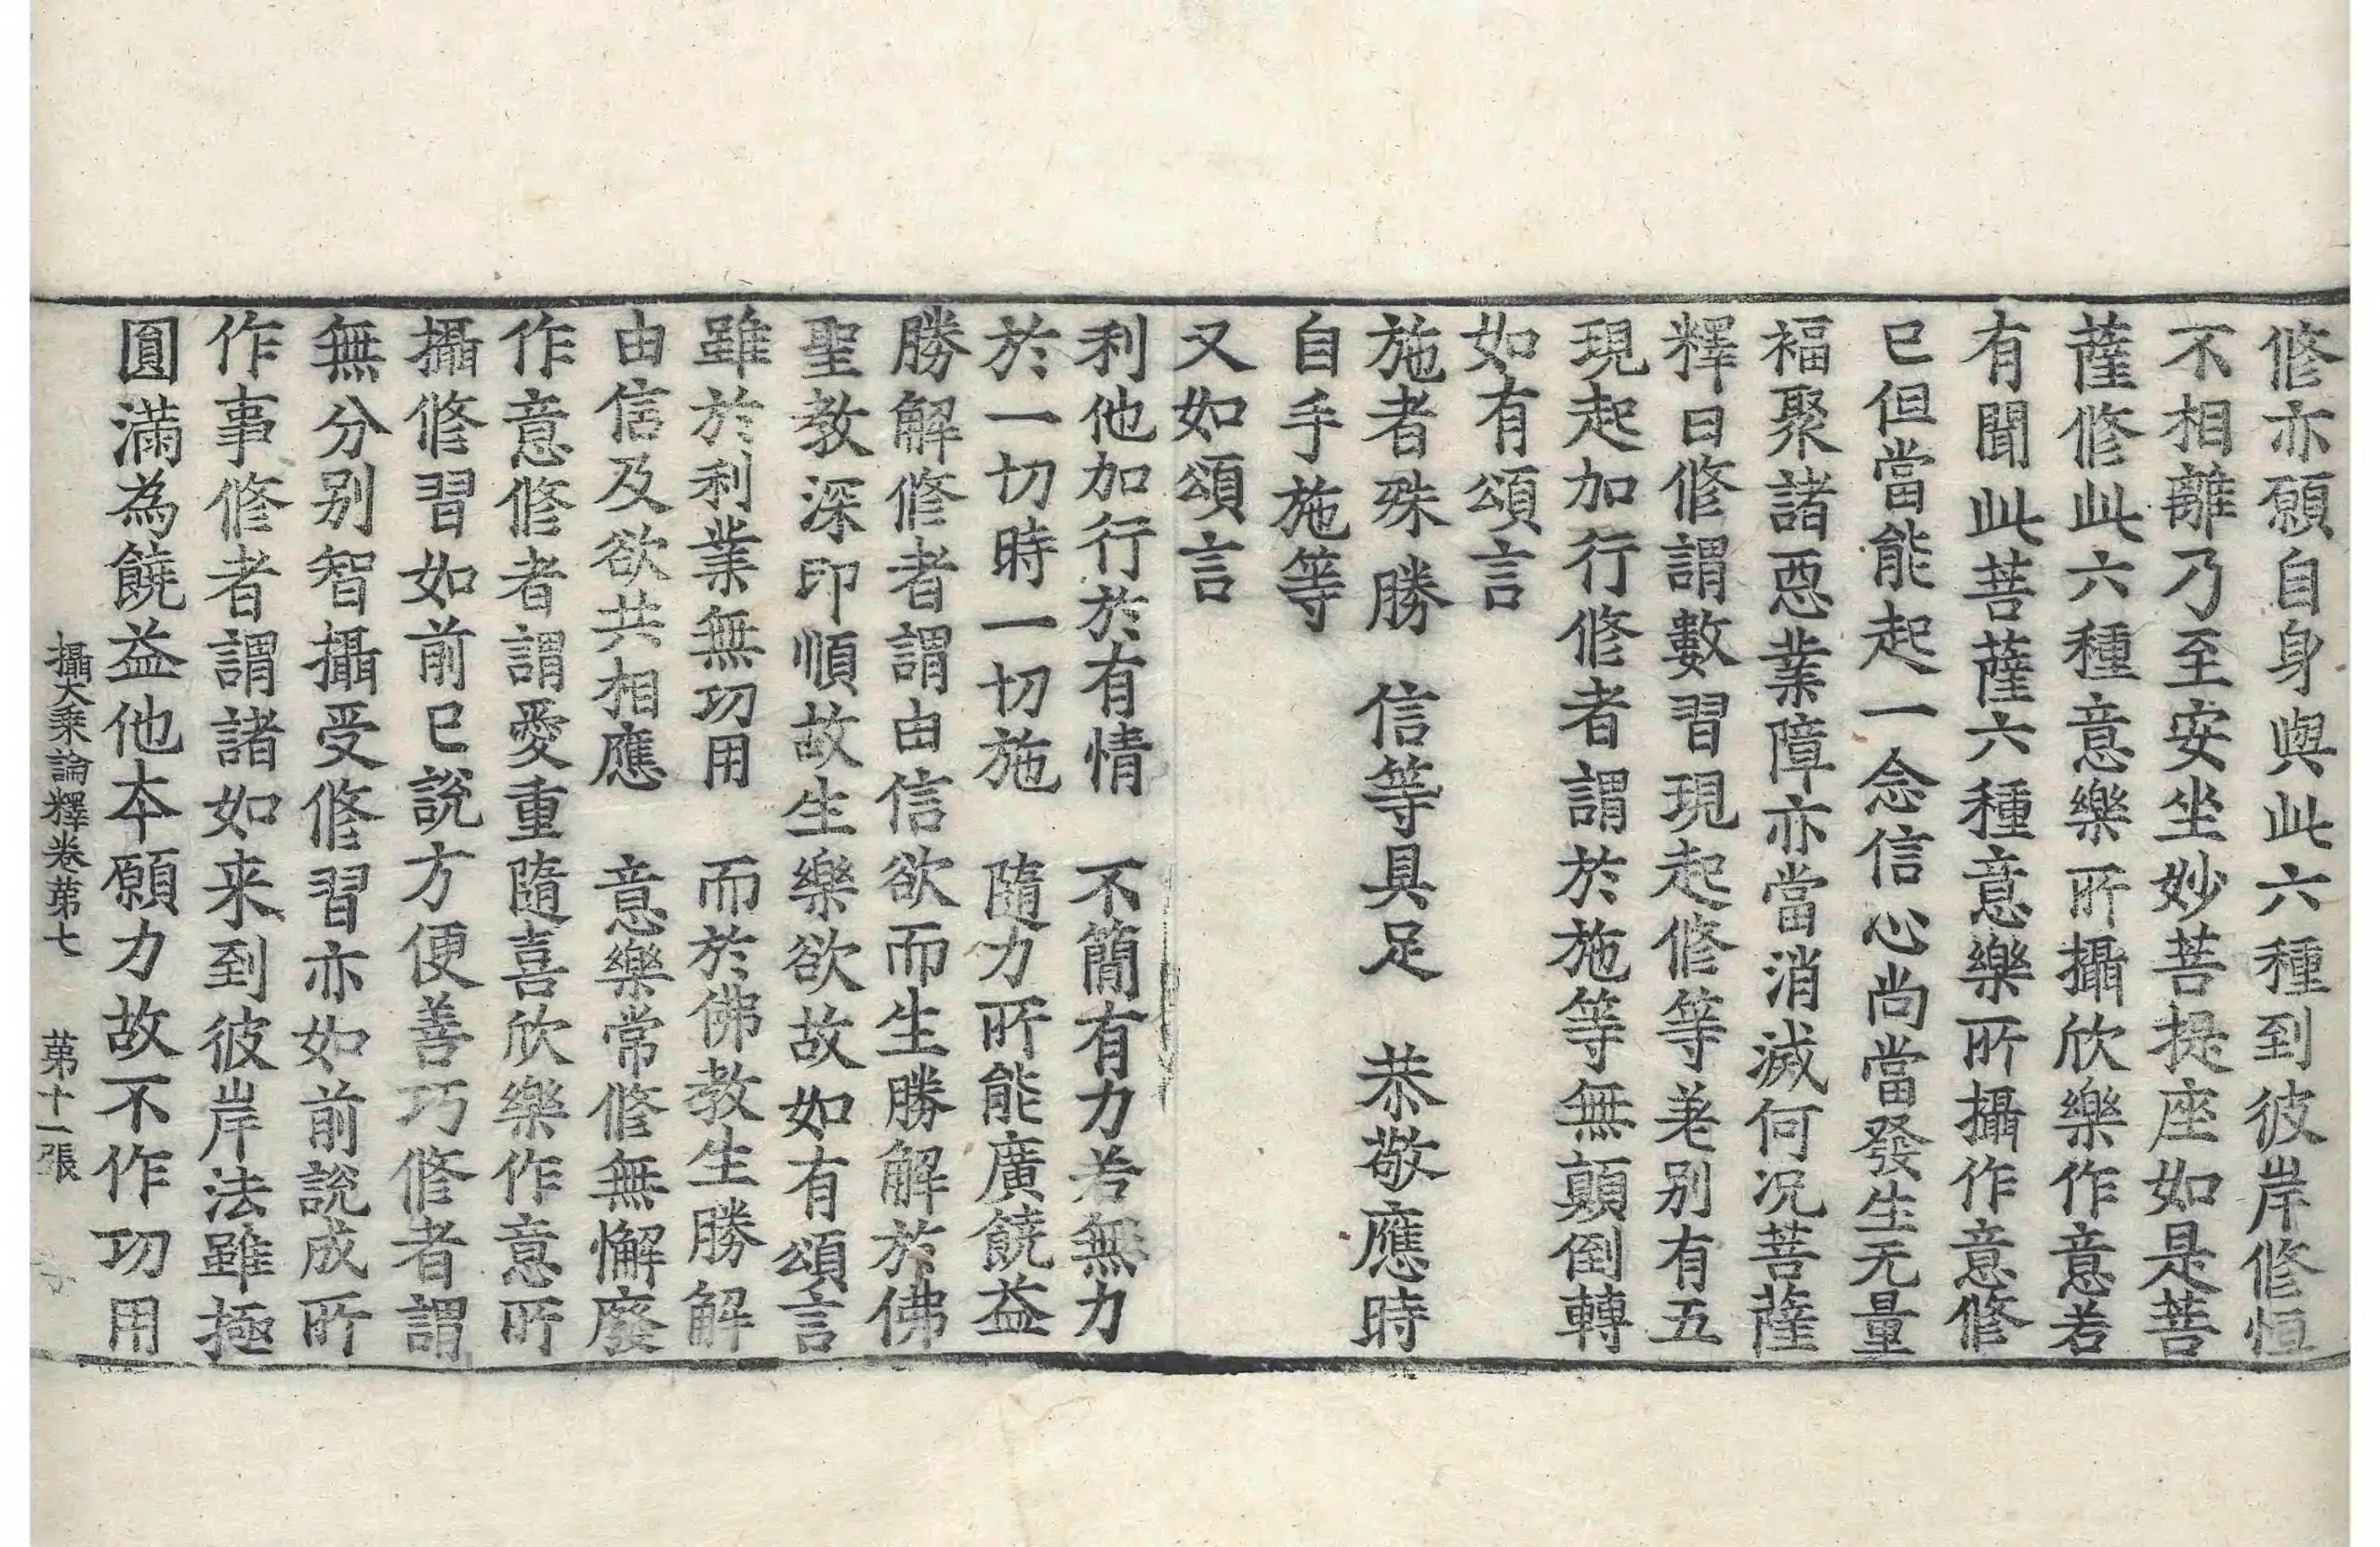 修亦願自身與此六種到彼岸修恒
不相離乃至安坐妙菩提座如是菩
薩修此六種意樂所攝欣樂作意若
有聞此菩薩六種意樂所攝作意修
已但當能起一念信心尚當發生无量
福聚諸惡業障亦當消滅何况菩薩
釋曰修謂數習現起修等差别有五
現起加行修者謂於施等無顛倒轉
如有頌言
施者殊勝　信等具足　恭敬應時
自手施等
又如頌言
利他加行於有情　不簡有力若無力
於一切時一切施　隨力所能廣饒益
勝解修者謂由信欲而生勝解於佛
聖教深印順故生樂欲故如有頌言
雖於利業無功用　而於佛教生勝解
由信及欲共相應　意樂常修無懈廢
作意修者謂愛重隨喜欣樂作意所
攝修習如前已說方便善巧修者謂
無分別智攝受修習亦如前說成所
作事修者謂諸如来到彼岸法雖極
圓滿為饒益他本願力故不作功用
攝大乘論釋卷苐七　苐十一張